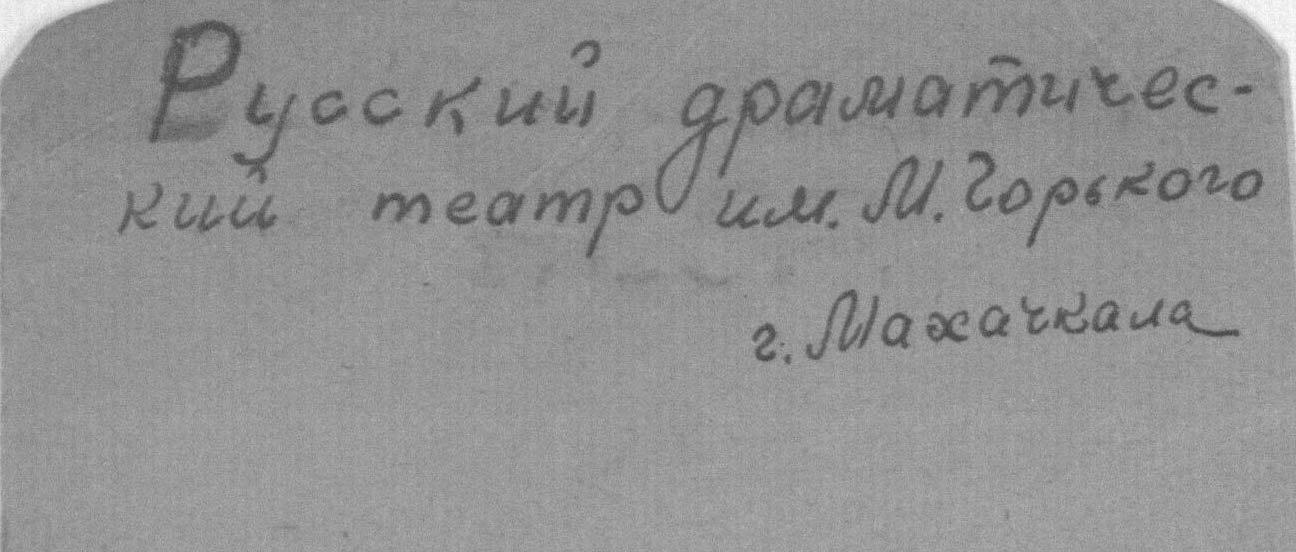 Русский драматичес-
кий театр им. М. Горького
г. Махачкала